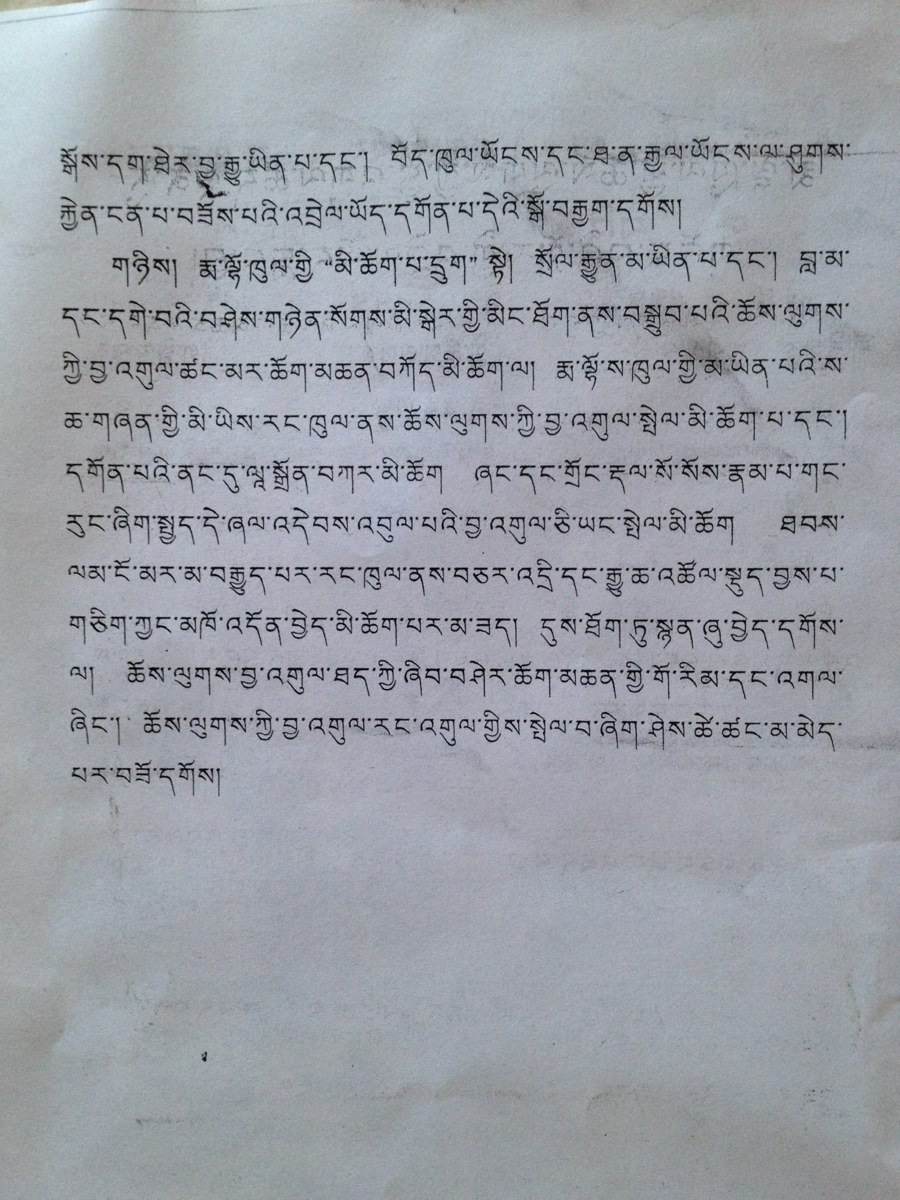 སྒོས་དག་ཐེར་བྱ་རྒྱུ་ཡིན་པ་དང་། བོད་ཁུལ་ཡོངས་དང་ཐ་ན་རྒྱལ་ཡོངས་ལ་ཤུགས་
རྐྱེན་ངན་པ་བཟོས་པའི་འབྲེལ་ཡོད་དགོན་པ་དེའི་སྒོ་བརྒྱག་དགོས།
གཉིས། རྨ་ལྷོ་ཁུལ་གྱི་“མི་ཆོག་པ་དྲུག”སྟེ། སྲོལ་རྒྱུན་མ་ཡིན་པ་དང་། བླ་མ་
དང་དགེ་བའི་བཤེས་གཉེན་སོགས་མི་སྒེར་གྱི་མིང་ཐོག་ནས་བསྒྲུབ་པའི་ཆོས་ལུགས་
ཀྱི་བྱ་འགུལ་ཚང་མར་ཆོག་མཆན་བཀོད་མི་ཆོག་ལ། རྨ་ལྷོ་ས་ཁུལ་གྱི་མ་ཡིན་པའི་ས་
ཆ་གཞན་གྱི་མི་ཡིས་རང་ཁུལ་ནས་ཆོས་ལུགས་ཀྱི་བྱ་འགུལ་སྤེལ་མི་ཆོག་པ་དང་།
དགོན་པའི་ནང་དུ་ལཱ་སྒྲོན་བཀར་མི་ཆོག ཞང་དང་གྲོང་རྡལ་སོ་སོས་རྣམ་པ་གང་
རུང་ཞིག་སྤྱད་དེ་ཞལ་འདེབས་འབུལ་པའི་བྱ་འགུལ་ཅི་ཡང་སྤེལ་མི་ཆོག ཐབས་
ལམ་ངོ་མར་མ་བརྒྱུད་པར་རང་ཁུལ་ནས་བཅར་འདྲི་དང་རྒྱུ་ཆ་འཚོལ་སྡུད་བྱས་པ་
གཅིག་ཀྱང་མཁོ་འདོན་བྱེད་མི་ཆོག་པར་མ་ཟད། དུས་ཐོག་ཏུ་སྙན་ཞུ་བྱེད་དགོས་
ལ། ཆོས་ལུགས་བྱ་འགུལ་ཐད་ཀྱི་ཞིབ་བཤེར་ཆོག་མཆན་གྱི་གོ་རིམ་དང་འགལ་
ཞིང་། ཆོས་ལུགས་ཀྱི་བྱ་འགུལ་རང་འགུལ་གྱིས་སྤེལ་བ་ཞིག་ཤེས་ཚེ་ཚང་མ་མེད་
པར་བཟོ་དགོས།